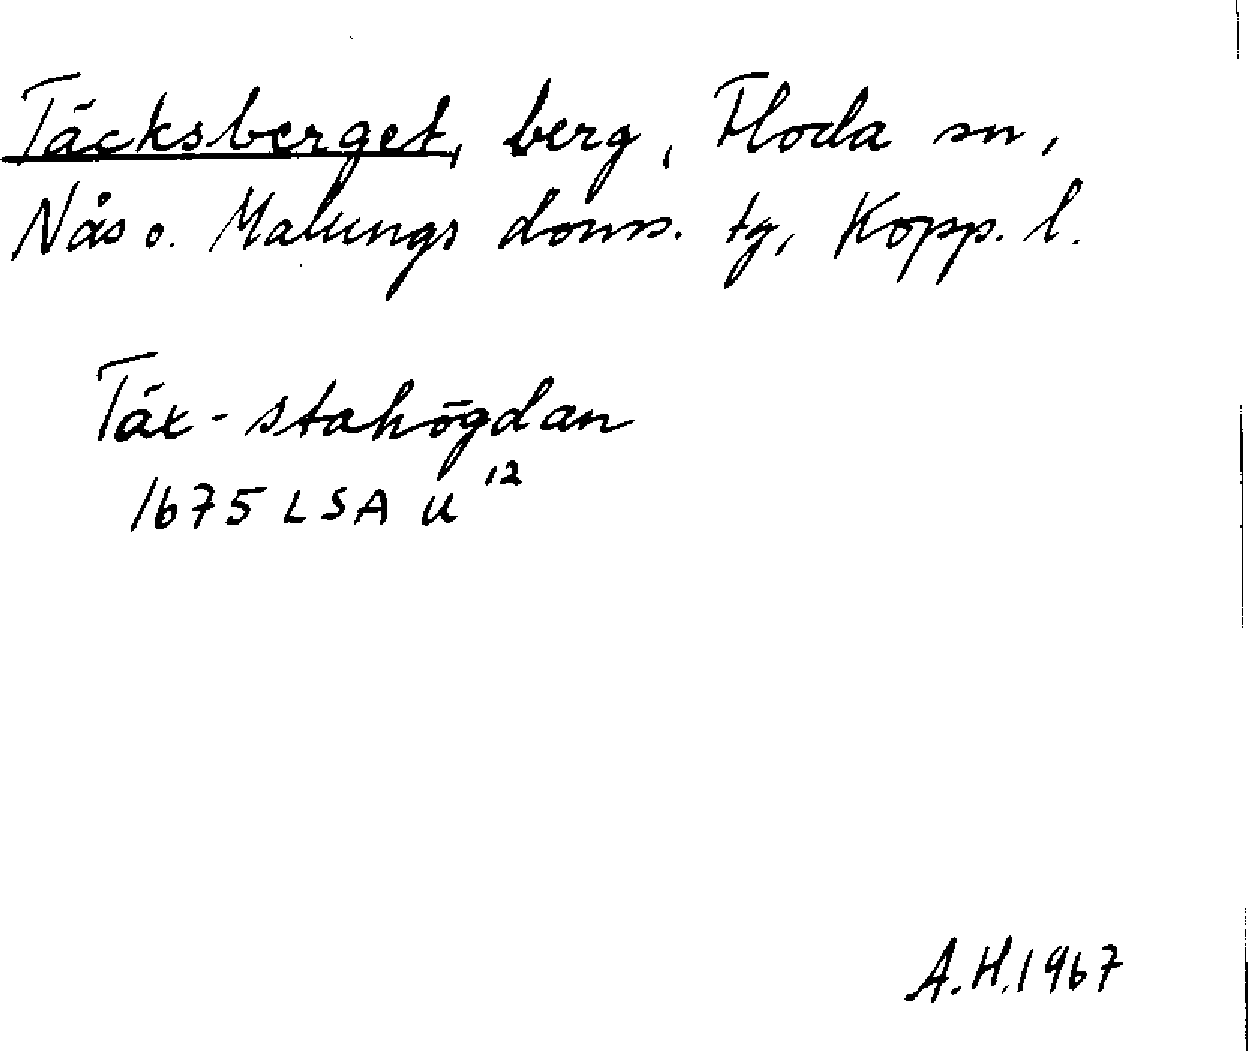 Täcksberget, berg, Floda sn,
Nås o. Malungs doms. tg, Kopp. l.
Täx-stahögdan
1675 LSA U 12
A.H. 1967